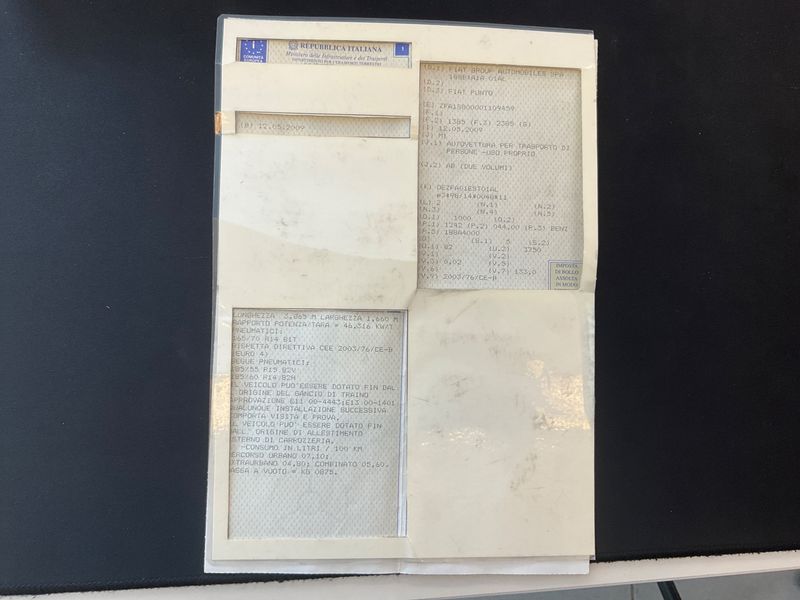 I
COMUNITÀ
EUROPEA
REPUBBLICA ITALIANA
Ministero delle Infrastrutture e dei Trasporti
DIPARTIMENTO PER I TRASPORTI TERRESTRI
1
(B) 12.05.2009
(D.1) FIAT GROUP AUTOMOBILES SPA
(D.2)
(D.3) FIAT PUNTO
(E) ZFA18800001109459
(F.1)
(F.2) 1385 (F.3) 2385 (G)
(I) 12.05.2009
(J) M1
(J.1) AUTOVETTURA PER TRASPORTO DI
PERSONE -USO PROPRIO
(J.2) AB (DUE VOLUMI)
(K) OEZFA01EST01AL
(L) 2 (N.1) (N.2)
(N.3) (N.4) (N.5)
(O.1) 1000 (O.2)
(P.1) 1242 (P.2) 044,00 (P.3) BENZ
(P.5) 188A4000
(Q) (S.1) 5 (S.2)
(U.1) 82 (U.2) 3750
(V.1) (V.2)
(V.3) 0,02 (V.5)
(V.6) (V.7) 133,0
(V.9) 2003/76/CE-B
IMPOSTA
DI BOLLO
ASSOLTA
IN MODO
LUNGHEZZA 3,865 M LARGHEZZA 1,660 M
RAPPORTO POTENZA/TARA = 46,316 KW/T
PNEUMATICI:
165/70 R14 81T
RISPETTA DIRETTIVA CEE 2003/76/CE-B
(EURO 4)
SEGUE PNEUMATICI:
185/55 R15 82V
185/60 R14 82H
IL VEICOLO PUO'ESSERE DOTATO FIN DAL
L'ORIGINE DEL GANCIO DI TRAINO
APPROVAZIONE E11 00-4443;E13 00-1401
QUALUNQUE INSTALLAZIONE SUCCESSIVA
COMPORTA VISITA E PROVA.
IL VEICOLO PUO' ESSERE DOTATO FIN
ALL' ORIGINE DI ALLESTIMENTO
STERNO DI CARROZZERIA.
-CONSUMO IN LITRI / 100 KM
ERCORSO URBANO 07,10;
XTRAURBANO 04,80; COMBINATO 05,60.
ASSA A VUOTO = KG 0875.